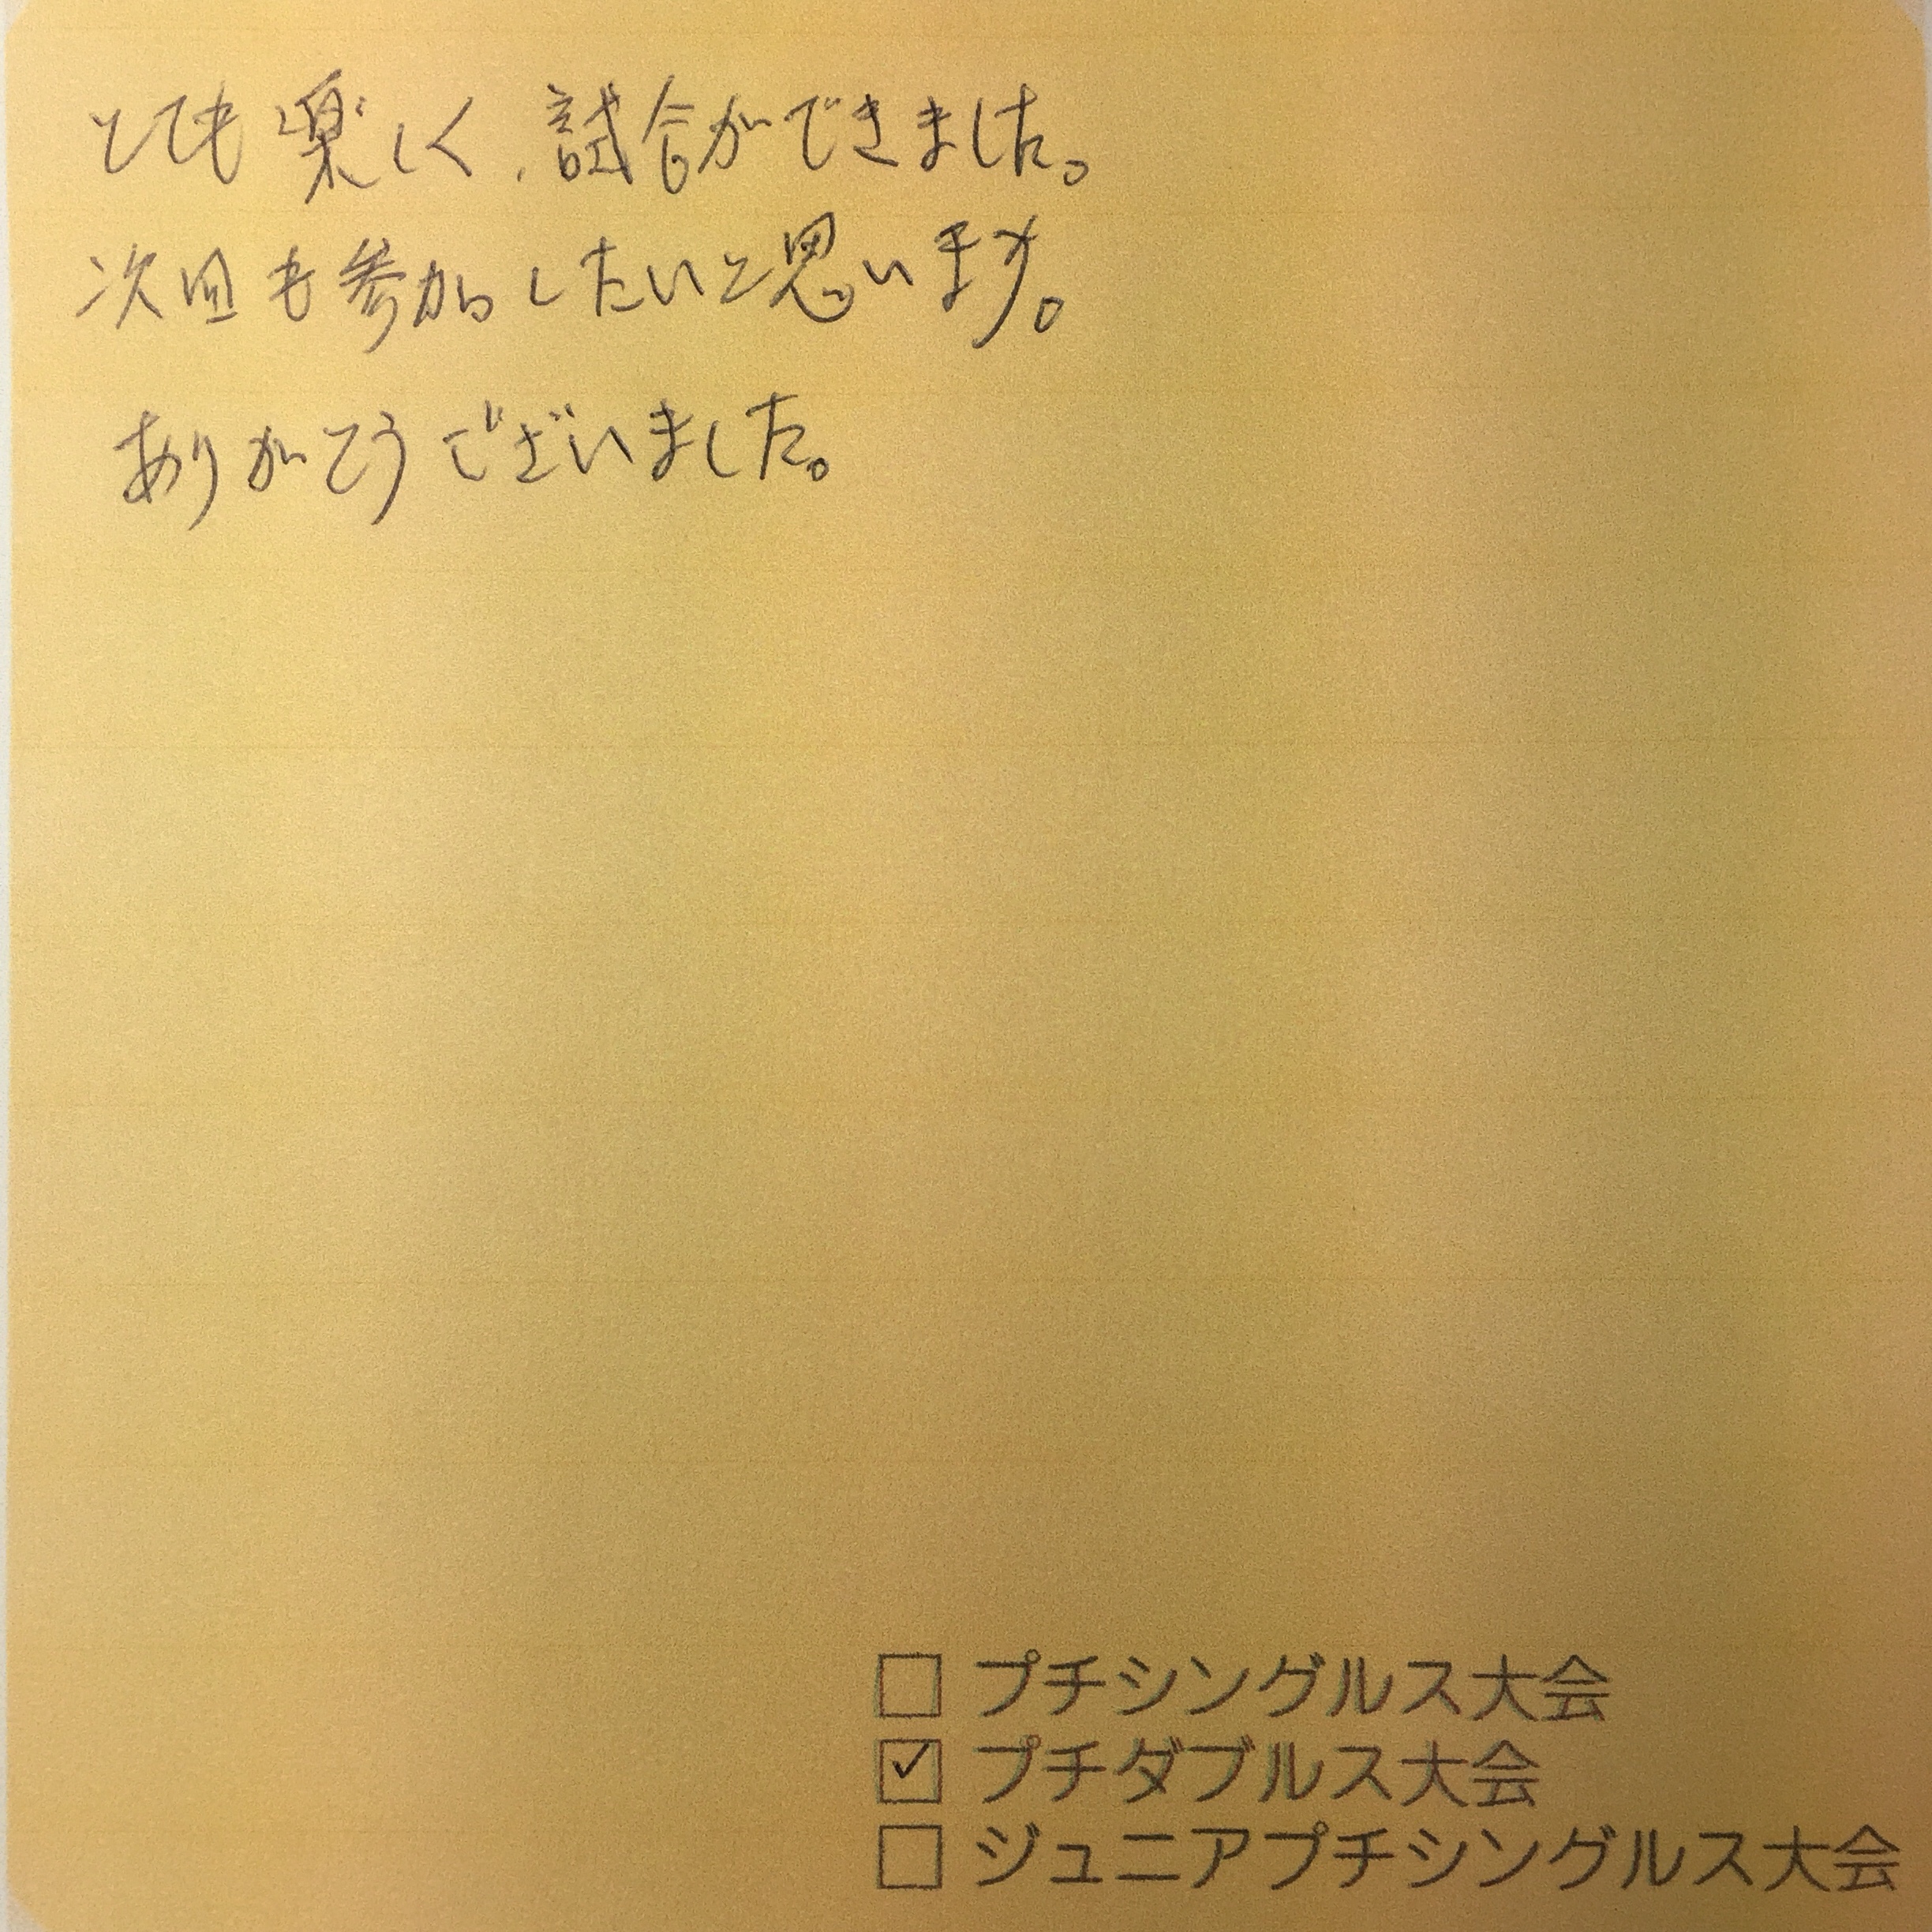 とても楽しく、試合ができました。
次回も参加したいと思います。
ありがとうございました。
□ プチシングルス大会
☑ プチダブルス大会
□ ジュニアプチシングルス大会